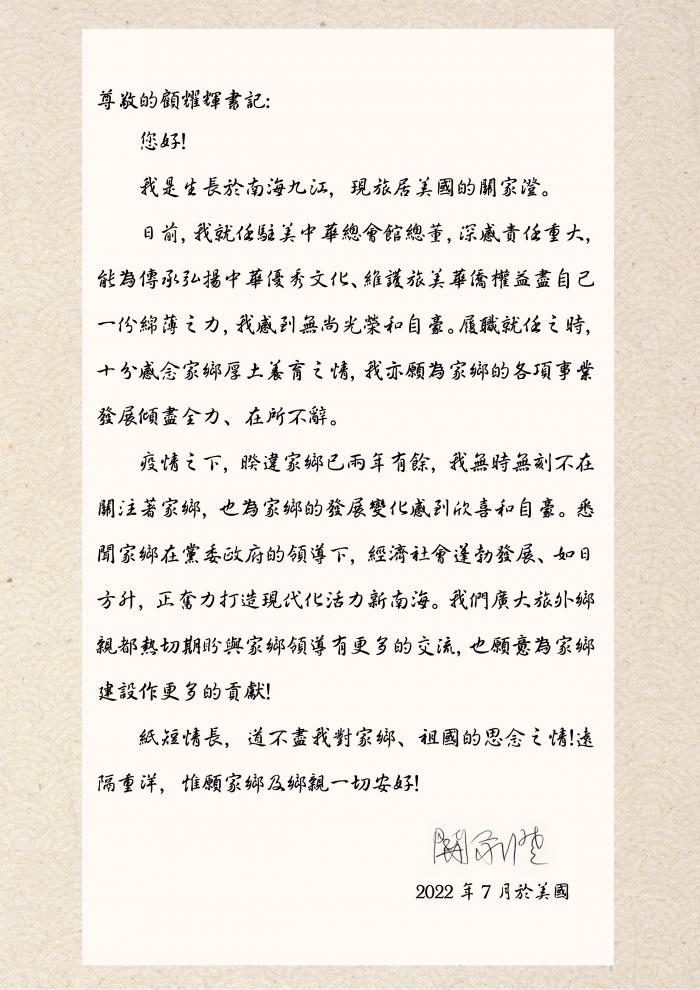 尊敬的顧耀輝書記:
您好!
我是生長於南海九江，現旅居美國的關家澄。
日前,我就任駐美中華總會館總董,深感責任重大,
能為傳承弘揚中華優秀文化、維護旅美華僑權益盡自己
一份綿薄之力,我感到無尚光榮和自豪。履職就任之時,
十分感念家鄉厚土養育之情,我亦願為家鄉的各項事業
發展傾盡全力、在所不辭。
疫情之下，睽違家鄉已兩年有餘，我無時無刻不在
關注著家鄉，也為家鄉的發展變化感到欣喜和自豪。悉
聞家鄉在黨委政府的領導下，經濟社會蓬勃發展、如日
方升，正奮力打造現代化活力新南海。我們廣大旅外鄉
親都熱切期盼與家鄉領導有更多的交流,也願意為家鄉
建設作更多的貢獻!
紙短情長，道不盡我對家鄉、祖國的思念之情!遠
隔重洋，惟願家鄉及鄉親一切安好!
關家澄
2022 年 7 月於美國